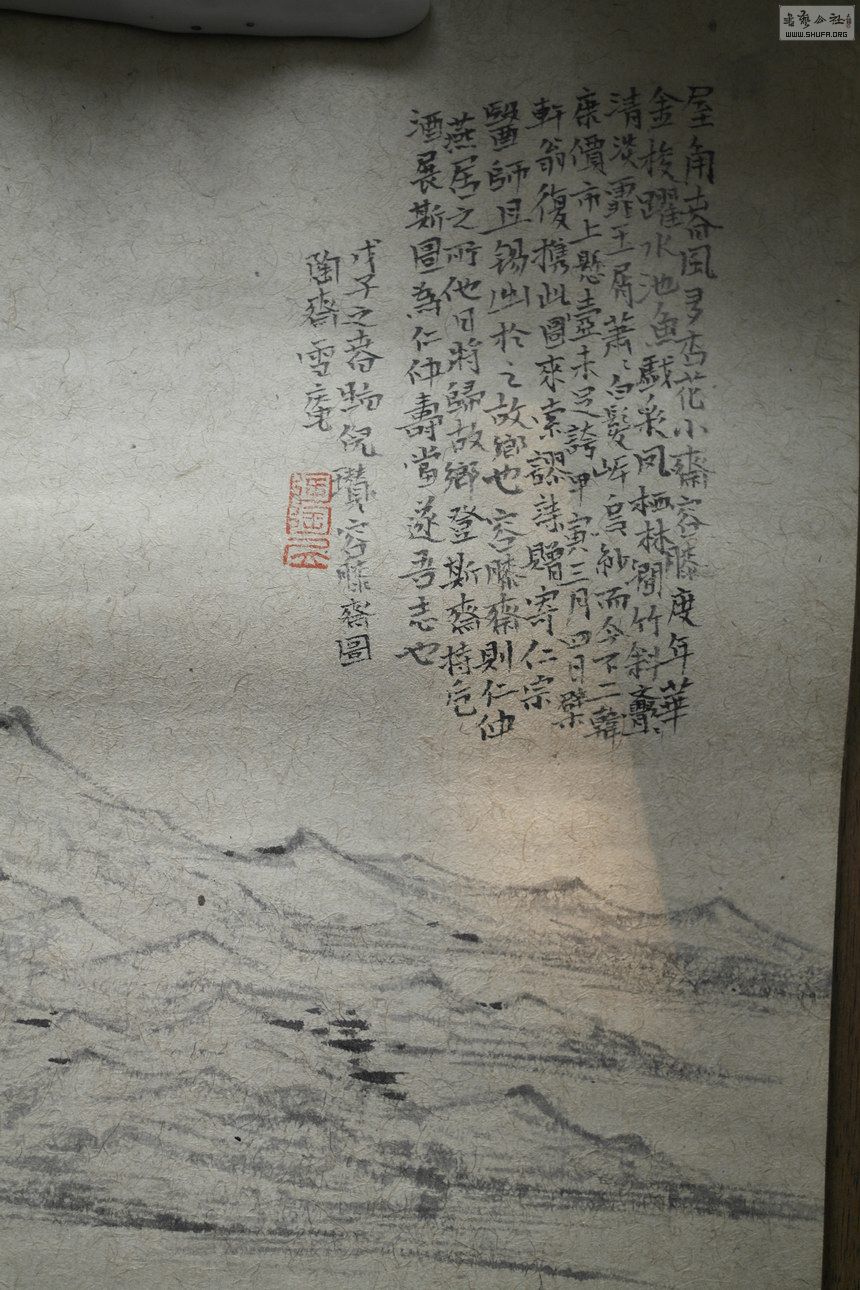 屋角春風多杏花小齋容膝度年華
金梭躍水池魚戲彩凤栖林澗竹斜亹〻
清淡霏玉屑蕭〻白髮岸烏紗而今不二韓
康價市上懸壺未足誇甲寅三月四日檗
軒翁復攜此圖來索謬詩贈寄仁宗
醫師且錫山於之故鄉也容膝齋則仁仲
燕居之所他日將歸故鄉登斯齋持卮
酒展斯圖為仁仲壽當遂吾志也
戊子之春临倪瓚容膝齋圖
陶齋雪庵
WWW.SHUFA.ORG